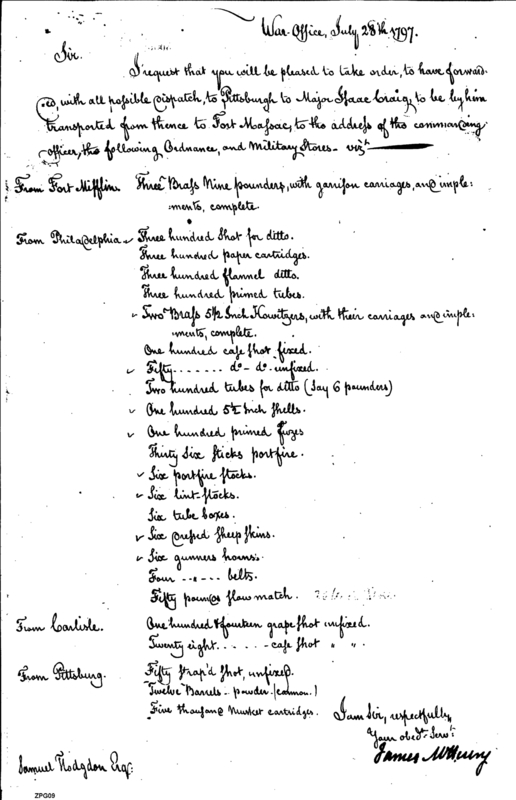 War-Office, July 28th 1797.
Sir.
I request that you will be pleased to take order, to have forward-
ed, with all possible dispatch, to Pittsburgh to Major Isaac Craig, to be by him
transported from thence to Fort Massac, to the address of the commanding
officer, the following Ordnance, and Military Stores - vizt
From Fort Mifflin. Three Brass Nine pounders, with garrison carriages, and imple:
ments, complete.
From Philadelphia - Three hundred Shot for ditto.
Three hundred paper cartridges.
Three hundred flannel ditto.
Three hundred primed tubes.
Two Brass 5½ Inch Howitzers, with their carriages and imple:
ments, complete.
One hundred case shot fixed.
Fifty....... do - do. unfixed.
Two hundred tubes for ditto (say 6 pounders)
One hundred 5½ Inch Shells.
One hundred primed fuzes
Thirty Six sticks portfire.
Six portfire stocks.
Six lint-stocks.
Six tube boxes.
Six dressed sheep skins.
Six gunners horns.
Four ..".. belts.
Fifty pounds slow match.
From Carlisle. One hundred & fourteen grape shot unfixed.
Twenty eight..... -case shot " ".
From Pittsburg. Fifty strap'd shot, unfixed.
Twelve Barrels - powder. (cannon.)
Five thousand musket cartridges.
I am Sir, respectfully,
Your obedt. Servt.
James McHenry
Samuel Hodgdon Esqr.
ZPG09